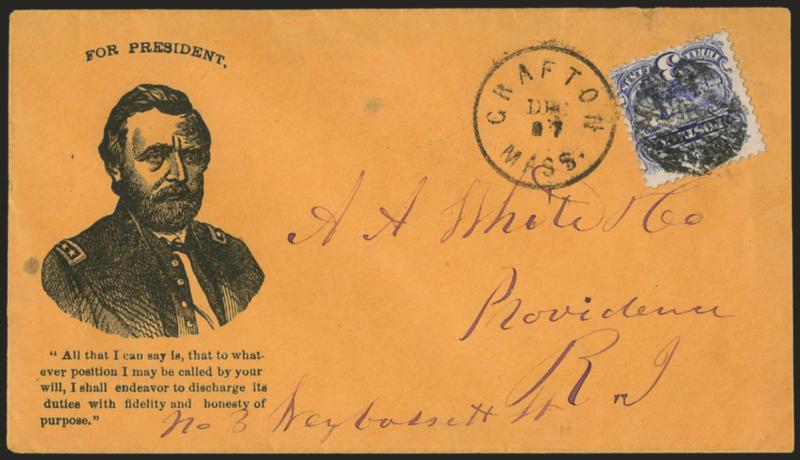 FOR PRESIDENT.
GRAFTON
DEC
MASS.
3
A A White & Co
Providence
R.I
No 3 Weybossett St
" All that I can say is, that to what-
ever position I may be called by your
will, I shall endeavor to discharge its
duties with fidelity and honesty of
purpose."